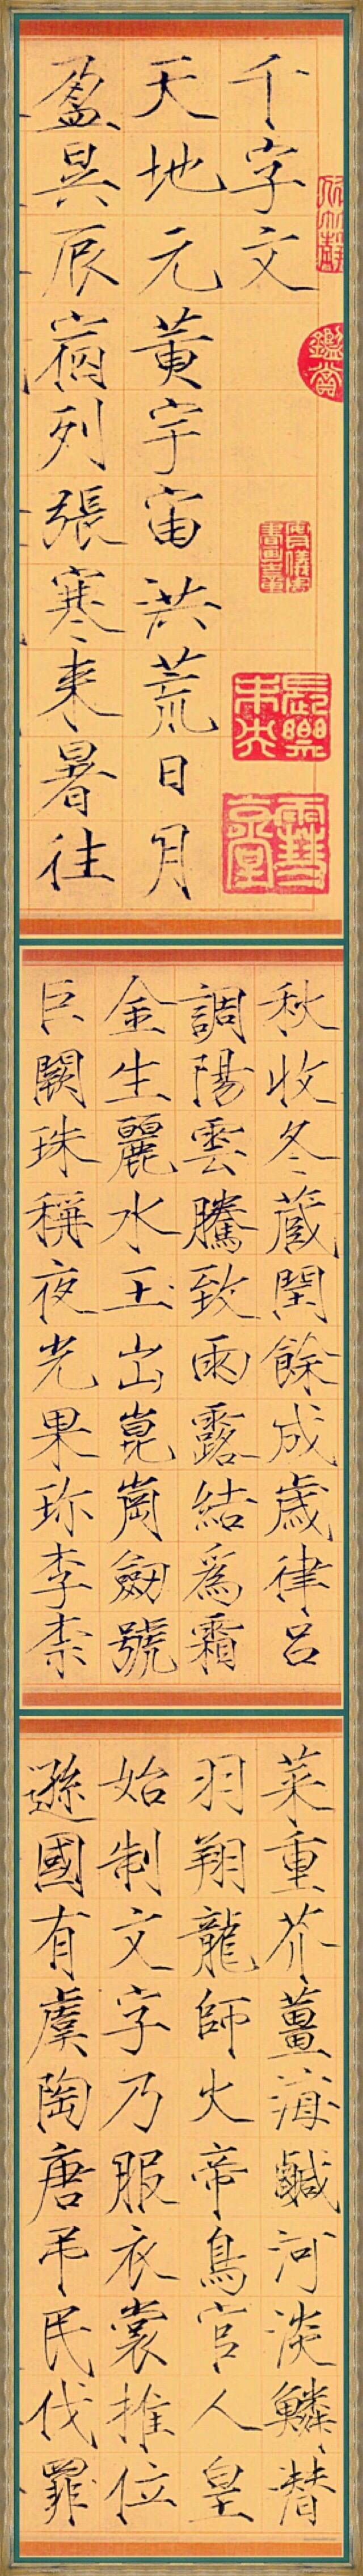 千字文
天地元黄宇宙洪荒日月
盈昃辰宿列張寒来暑往
鑑賞
長樂未央
秋收冬蔵閏餘成歳律呂
調陽雲騰致雨露結爲霜
金生麗水玉出崑崗劒號
巨闕珠稱夜光果珎李柰
菜重芥薑海鹹河淡鱗潜
羽翔龍師火帝鳥官人皇
始制文字乃服衣裳推位
遜國有虞陶唐弔民伐罪